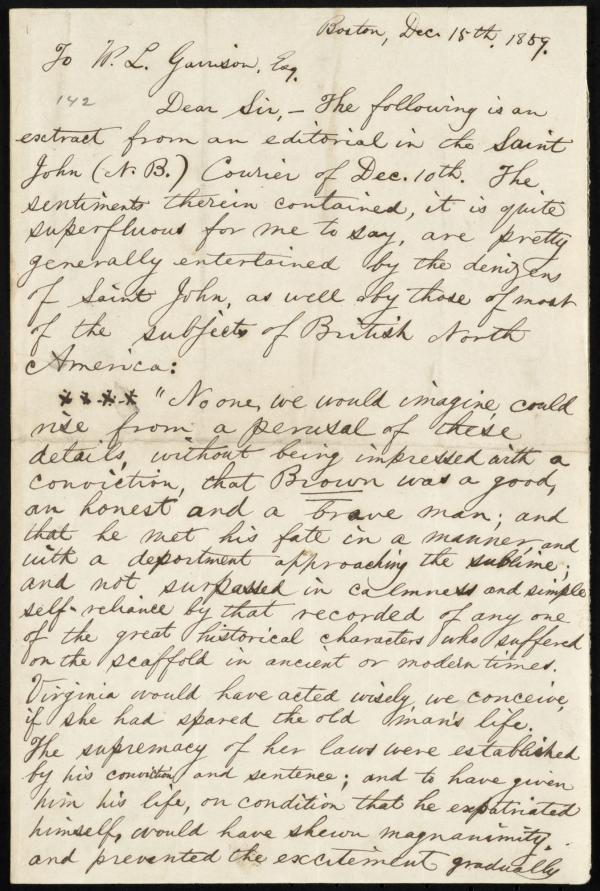 Boston, Dec. 15th, 1859.
To W. L. Garrison, Esq.
142
Dear Sir, — The following is an
extract from an editorial in the Saint
John (N. B.) Courier of Dec. 10th. The
sentiments therein contained, it is quite
superfluous for me to say, are pretty
generally entertained by the denizens
of Saint John, as well as by those of most
of the subjects of British North
America:
**** "No one, we would imagine, could
rise from a perusal of these
details, without being impressed with a
conviction, that Brown was a good,
an honest and a brave man; and
that he met his fate in a manner, and
with a deportment approaching the sublime;
and not surpassed in calmness and simple
self-reliance by that recorded of any one
of the great historical characters who suffered
on the scaffold in ancient or modern times.
Virginia would have acted wisely, we conceive,
if she had spared the old man's life.
The supremacy of her laws were established
by his conviction and sentence; and to have given
him his life, on condition that he expatriated
himself, would have shewn magnanimity,
and prevented the excitement gradually